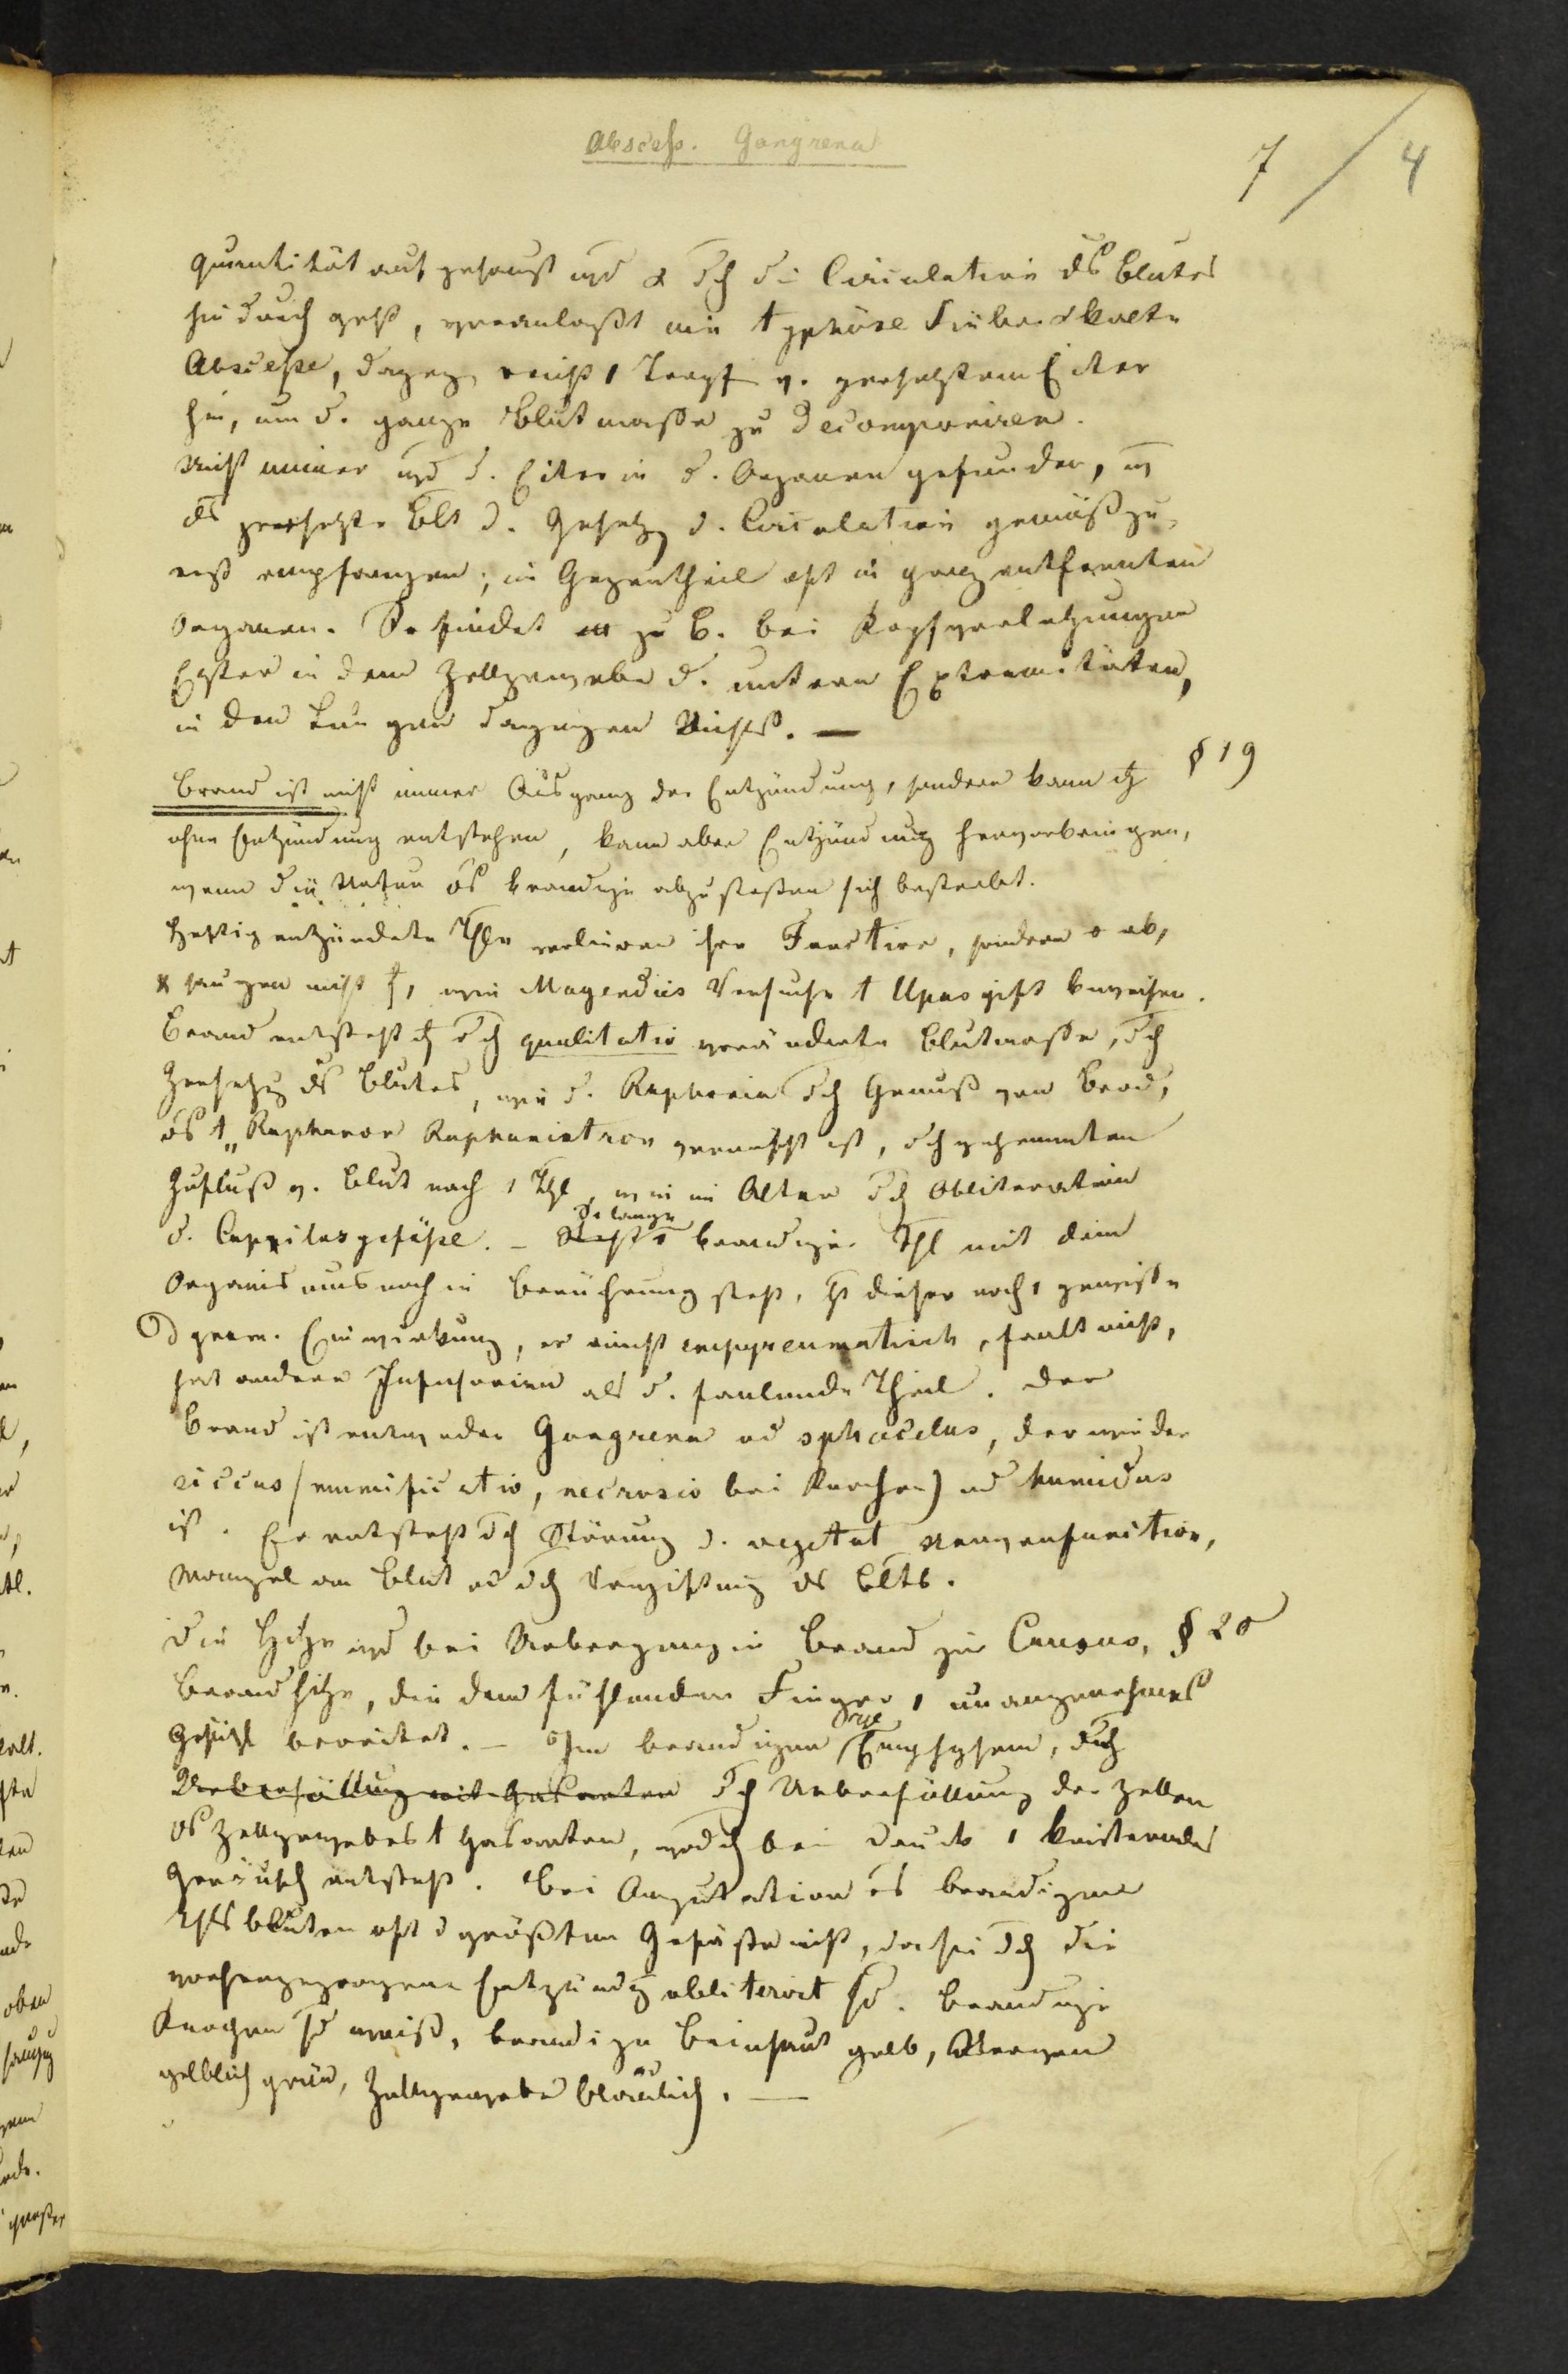 Abscess. Gangrena
7 / 4
Quantität auf gehäuft wd & dch die Circulation ds Blutes
hindurch geht, veranlaßt nie typhöse Fieber & kalte
Abscesse, dageg reicht 1 Tropf v. zersetztem Eiter
hin, um d. ganze Blutmasse zu decomponiren.
Nicht immer wd d. Eiter in d. Organen gefunden, w
ds zersetzte Blt d. Gesetz d. Circulation gemäß zu
erst empfangen; im Gegentheil oft in ganz entfernten
Organen. So findet m z. B. bei Kopfverletzungen
Eyter in dem Zellgewebe d. untern Extremitäten,
in den Lungen dagegen Nichts. —
Brand ist nicht immer Ausgang der Entzündung, sondern kann § 19
ohne Entzündung entstehen, kann aber Entzündung hervorbringen,
wenn die Natur ds brandige abzustoßen sich bestrebt.
Heftig entzündete Thle verlieren ihre Function, sondern o ab,
& saugen nicht , wie Magendies Versuche t Upasgift beweisen.
Brand entsteht dch qualitativ veränderte Blutmasse, dch
Zersetzg ds Blutes, wie d. Raphania dch Genuß von Brod,
ds t Raphanus Raphanistron vermischt ist, dch gehemmten
Zufluß v. Blut nach 1 Thl, wie im Alter dch Obliteration
d. Cappilargefäße. – So lange brandiger Thl mit dem
Organismus noch in Berührung steht, ht dieser noch 1 gewisse
Einwirkung, er riecht empyreumatisch, fault nicht,
hat andere Infusorien als d. faulende Theil. Der
Brand ist entweder Gangrena od sphacelus, der wieder
siccus (mumificatio, necrosis bei Knochen) od humidus
ist. Er entsteht dch Störung d. vegetat Nervenfunction,
Mangel an Blut od dch Vergiftung ds Blts.
Die Hitze wd bei Uebergang in Brand zu Causus, § 20
Brandhitze, die dem fühlenden Finger 1 unangenehmes
Gefühl bereitet. – brandigen Emphysem, dch
Ueberfüllung mit Gasarten dch Ueberfüllung der Zellen
ds Zellgewebes t Gasarten, wodch bei Druck 1 knisterndes
Geräusch entsteht. Bei Amputation es brandigen
Thls bluten oft d größten Gefäße nicht, da sie dch die
vorhergegangene Entzündg obliterirt sd. Brandige
Knochen sd weiß, brandige Beinhaut gelb, Nerven
gelblich grün, Zellgewebe bläulich. —